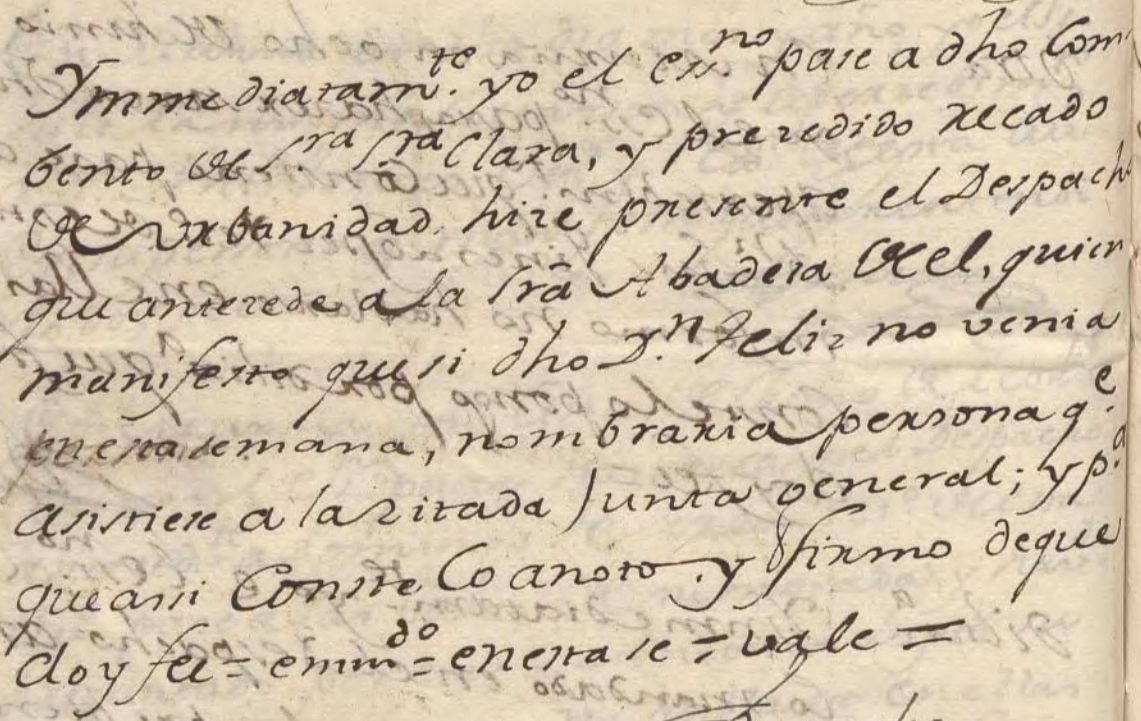 Ymmediatam.te yo el ess.no pase a dho Com
bento de s.ra s.ra Clara, y prezedido recado
de urbanidad hize presente el Despach
que antezede a la sra Abadesa de el, quien
manifesto que si dho D.n Feliz no venia
en esta semana, nombraria persona q.e
asistiese a la zitada Junta general; y p.a
que assi Conste Lo anoto y firmo de que
doy fee = emm.do = en esta se = vale =